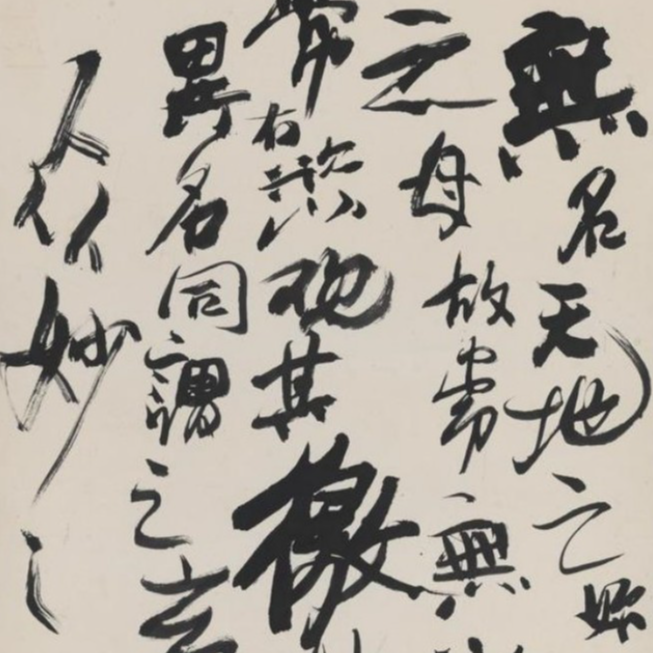 無名天地之始
之母故常無
常有欲觀其徼
異名同謂之玄
众妙之